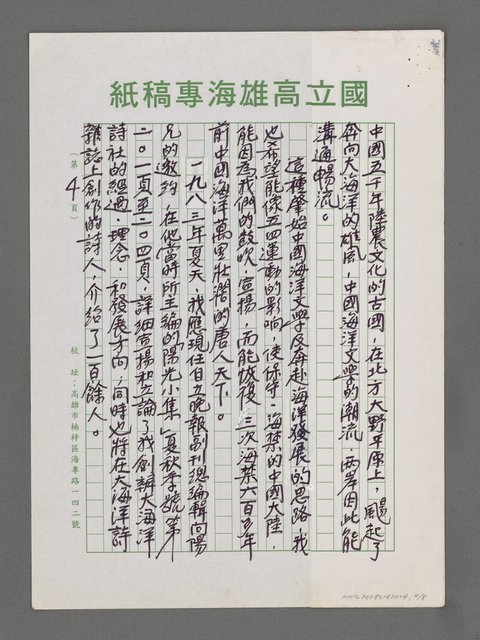 國立高雄海專稿紙
中國五千年陸農文化的古國，在北方大野平原上，颺起了
奔向大海洋的雄風，中國海洋文學的潮流，兩岸因此能
溝通暢流。
這種肇始中國海洋文學及奔赴海洋發展的思路，我
也希望能像五四運動的影響，使保守、海禁的中國大陸，
能因為我們的鼓吹、宣揚，而能恢復三次海禁六百多年
前中國海洋萬里壯濶的唐人天下。
一九八三年夏天，我應現任自立晚報副刊總編輯向陽
兄的邀約，在他當時所主編的「陽光小集」夏秋季號第
二〇一頁至二〇四頁，詳細宣揚和立論了我創辦大海洋
詩社的經過、理念、和發展方向，同時也將在大海洋詩
雜誌上創作的詩人，介紹了一百餘人。
（第 4 頁）
校 址：高雄市楠梓區海專路一四二號
NMTL20080182024, 4/8